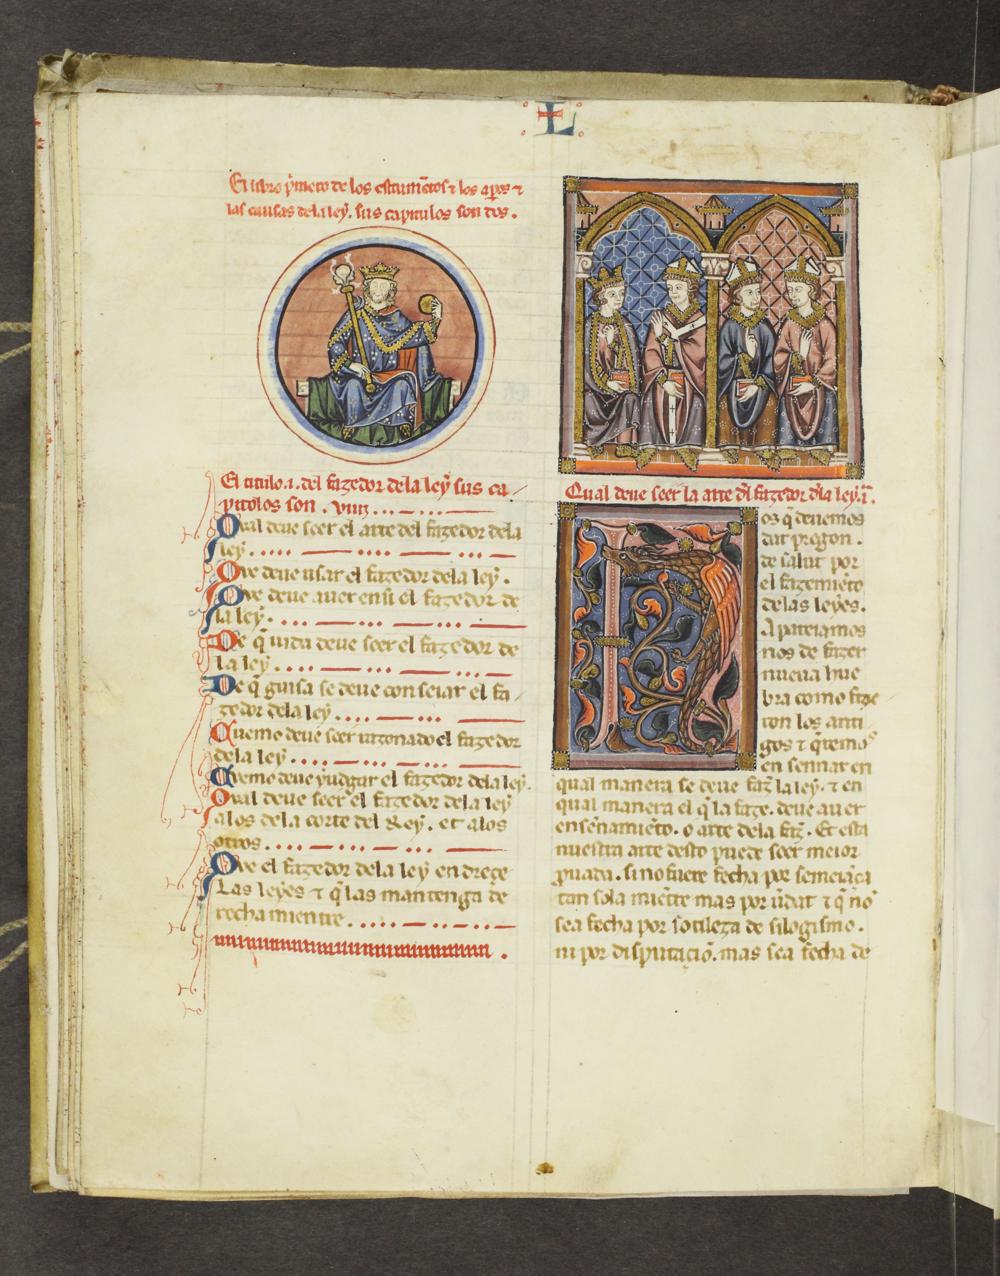 L
El libro p̃mero de los estrumẽtos ⁊ los apos ⁊
las causas dela ley. sus capitulos son dos.
El titulo .i. del fazedor dela leẏ sus ca
pitolos son. viiij
Qual deue seer el arte del fazedor dela
leẏ.
Que deue usar el fazedor dela leẏ.
Que deue auer ensi el fazedor de
la leẏ.
De q̃ uida deue seer el fazedor de
la leẏ
De q̃ guisa se deue conseiar el fa
zedor dela leẏ
Quemo deue seer razonado el fazedor
dela leẏ
Quemo deue yudgar el fazedor dela leẏ.
Qual deue seer el fazedor dela leẏ
alos dela corte del Rey. et alos
otros
Que el fazedor dela leẏ endreçe
Las leẏes ⁊ q̃ las mantenga de
rechamientre
Qual deue seer la arte dl̃ fazedor dl̃a leẏ. i.
os q̃ deuemos
dar pregon.
de salut por
el fazemiẽto
delas leyes.
Apareiamos
nos de fazer
nueua hue
bra como faze
ron los anti
gos ⁊ q̃remos
ensennar en
qual manera se deue faz̃ la leẏ. ⁊ en
qual manera el q̃ la faze. deue auer
ensenamiẽto. o arte dela faz̃. Et esta
nuestra arte desto puede seer meior
ꝓuada. si no fuere fecha por semeiãça
tan sola miẽtre mas por ũdat ⁊ q̃ nõ
sea fecha por sotileza de silogismo.
ni por disputaçiõ. mas sea fecha de